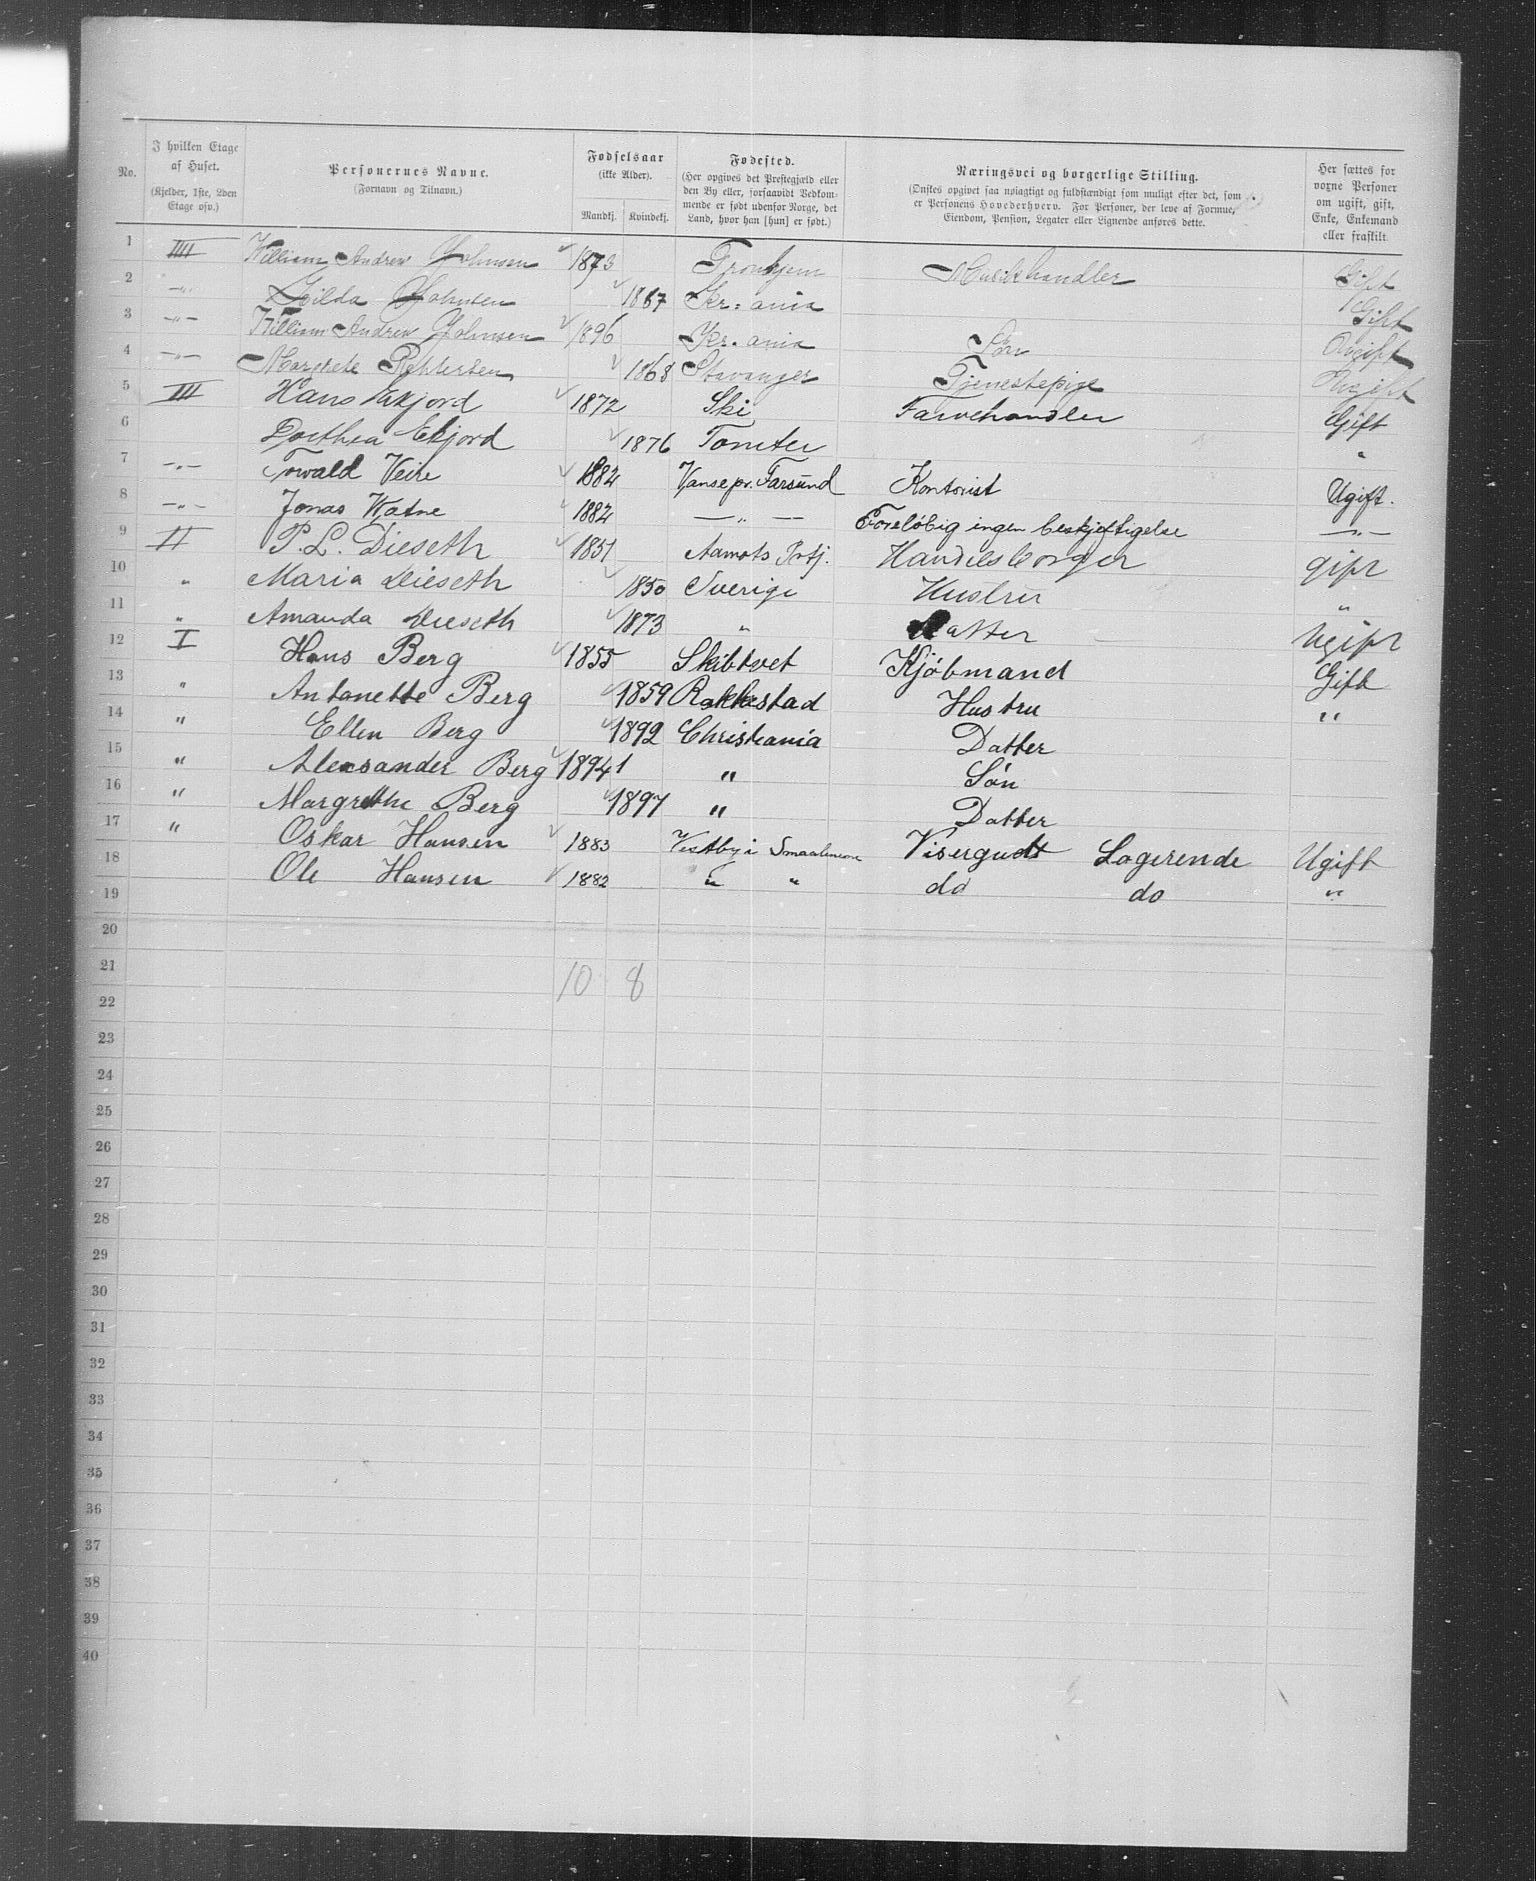 No. | I hvilken Etage af Huset. (Kjelder, 1ste, 2den Etage osv.) | Personernes Navne. (Fornavn og Tilnavn.) | Fødselsaar (ikke Alder). Mandkj. Kvindekj. | Fødested. (Her opgives det Prestegjæld eller den By eller, forsaavidt Vedkommende er født udenfor Norge, det Land, hvor han [hun] er født.) | Næringsvei og borgerlige Stilling. (Ønskes opgivet saa nøiagtigt og fuldstændigt som muligt efter det, som er Personens Hovederhverv. For Personer, der leve af Formue, Eiendom, Pension, Legater eller Lignende anføres dette. | Her sættes for voxne Personer om ugift, gift, Enke, Enkemand eller fraskilt
1 IIII William Andrew Johnsen 1873 Tronhjem Musikhandler Gift
2 -"- Hilda Johnsen 1867 Kr:ania Gift
3 -"- William Andrew Johnsen 1896 Kr.ania Søn Ungift
4 -"- Margrete 1868 Stavanger Tjenestepige Ungift
5 III Hans Ekjord 1872 Ski Farvehandler Gift
6 Dorthea Ekjord 1876 Tomter "
7 -"- Torvald Veire 1882 Vansepr. Farsund Kontorist Ugift.
8 -"- Jonas Watne 1882 — " — Foreløbig ingen beskjæftigelse —"—
9 II P. L. Dieseth 1851 Aamots Prtj. Handelsborger gift
10 " Maria Dieseth 1850 Sverige Hustru "
11 " Amanda Dieseth 1873 " Datter Ugift
12 I Hans Berg 1855 Skibtvet Kjøbmand Gift
13 " Antonette Berg 1859 Rakkestad Hustru "
14 " Ellen Berg 1892 Christiania Datter
15 " Alexsander Berg 1894 1 " Søn
16 " Margrethe Berg 1897 " Datter
17 " Oskar Hansen 1883 Vestby i Smaalenene Visergudt Logerende Ugift
18 Ole Hansen 1882 " " do do "
19
20
21 10 8
22
23
24
25
26
27
28
29
30
31
32
33
34
35
36
37
38
39
40